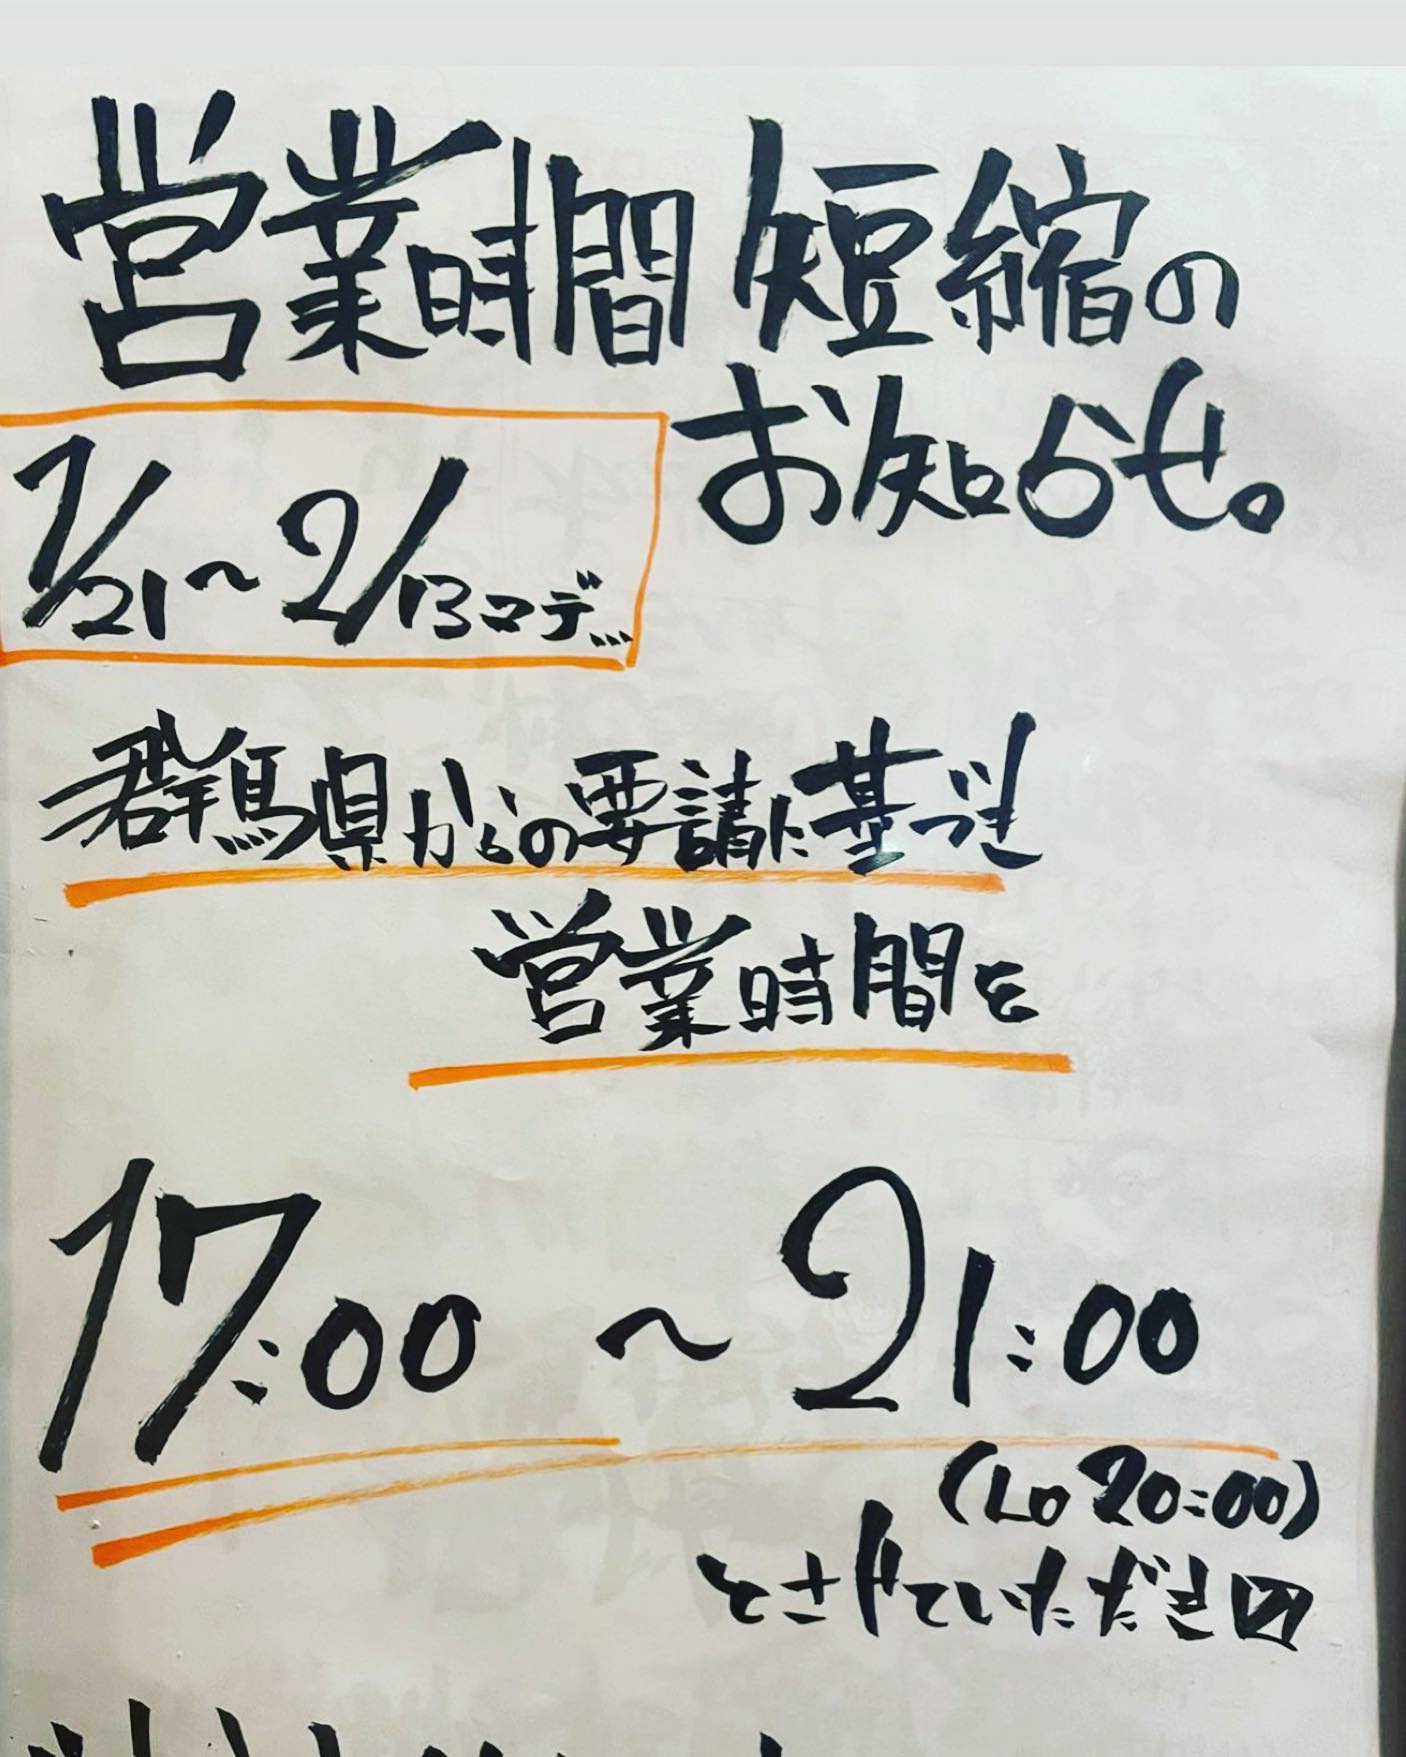 営業時間短縮の
お知らせ。
1/21〜2/13マデ…
群馬県からの要請に基づき
営業時間を
17:00 〜 21:00
(LO 20:00)
とさせていただき〼